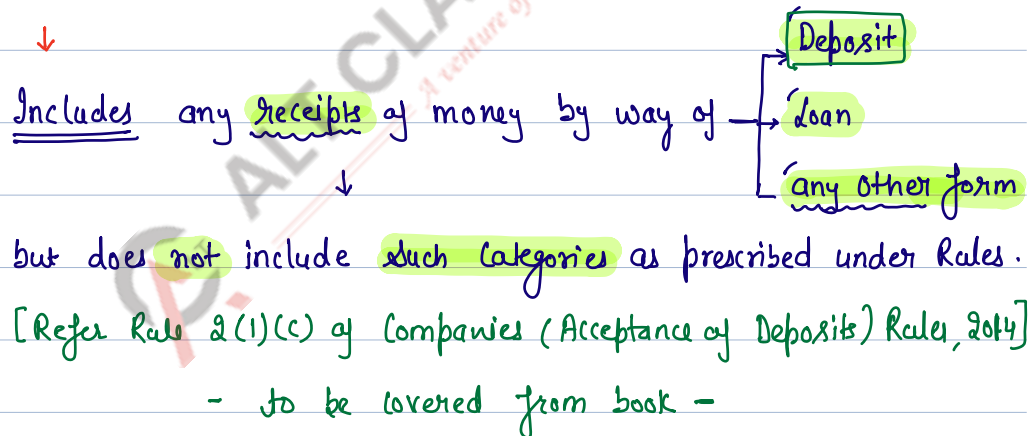 Deposit
Includes any receipts of money by way of
Loan
any other form
but does not include such Categories as prescribed under Rules.
[Refer Rule 2(1)(c) of Companies (Acceptance of Deposits) Rules, 2014]
- to be covered from book -
ALT CLA
A venture of